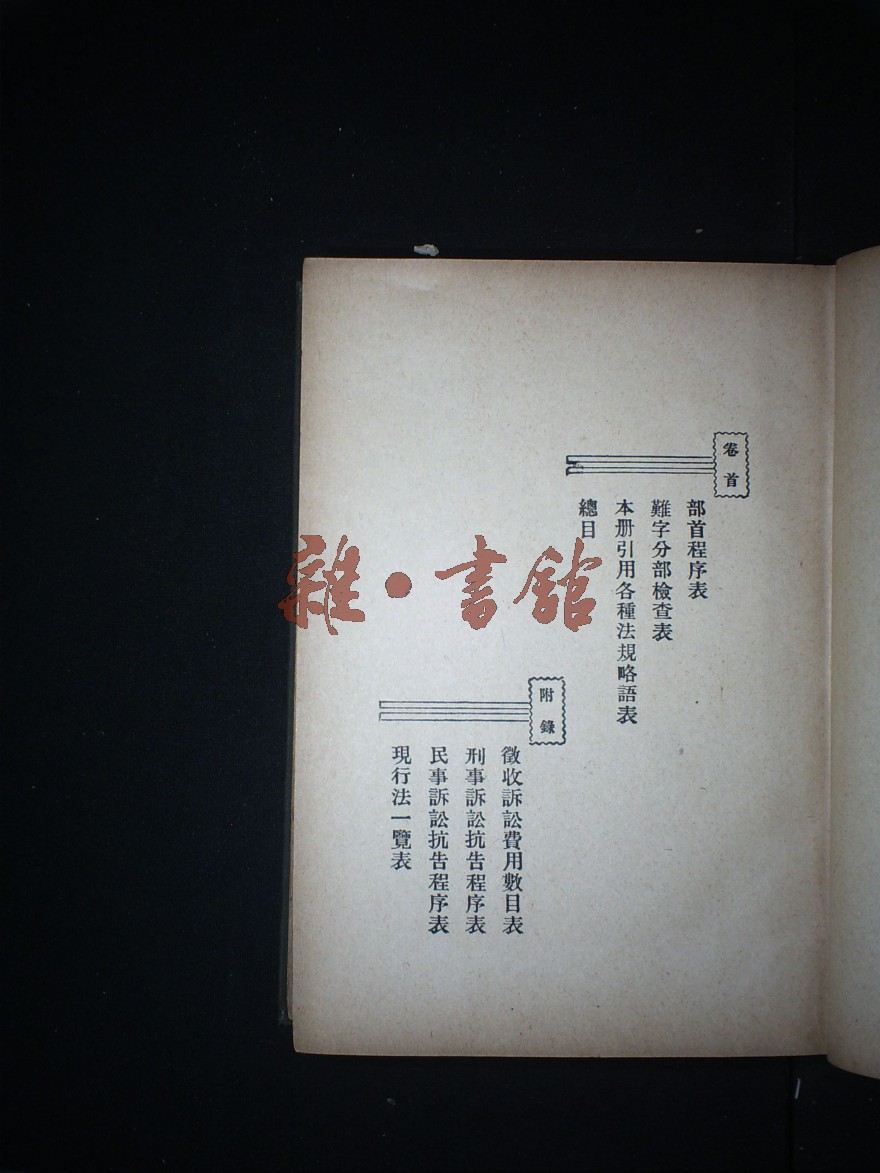 卷首
部首程序表
難字分部檢查表
本册引用各種法規略語表
總目
附錄
徵收訴訟費用數目表
刑事訴訟抗告程序表
民事訴訟抗告程序表
現行法一覽表
雜·書館